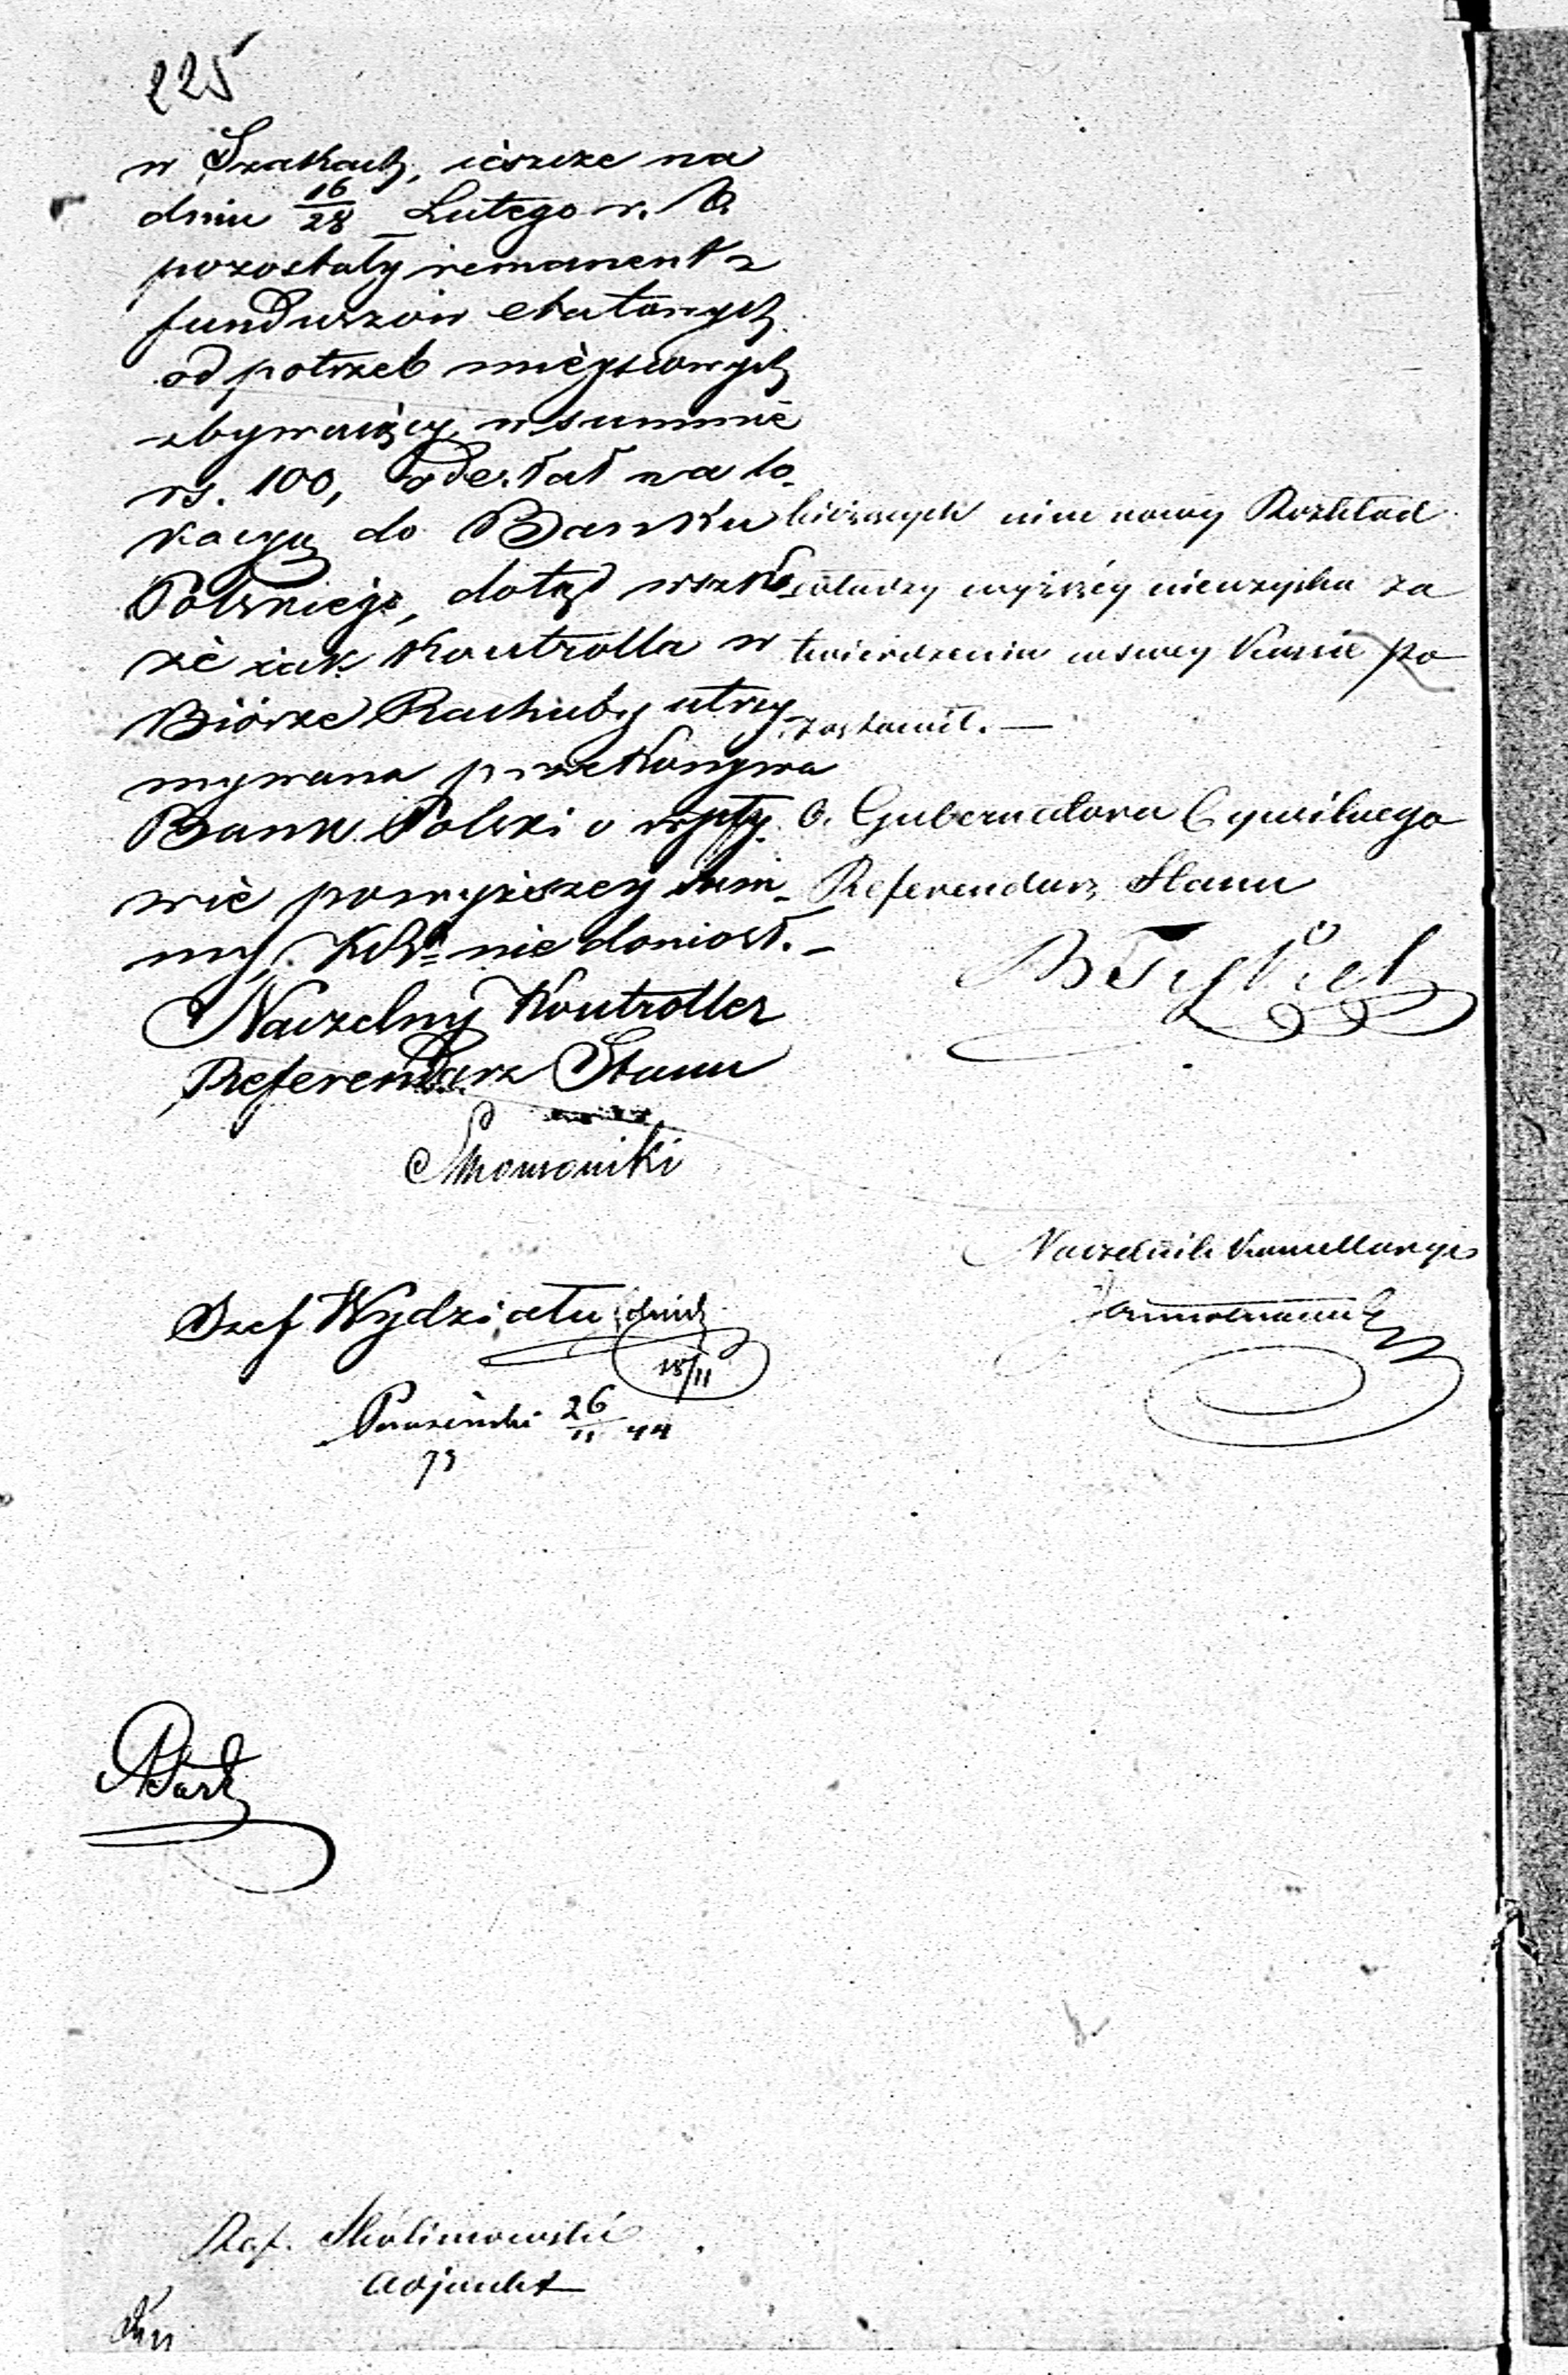 225
w Szakach, ieszcze na
dniu 16/28 Lutego r. b.
pozostały remanent z
funduszów etatowych
od potrzeb mieyscowych
zbywaiący, w summie
rs. 100, odesłał na lo-
kacyą do Banku
Polskiego, dotąd wszak-
że iak Kontrolla w
Biórze Rachuby utrzy-
mywana przekonywa
Bank Polski o wpły-
wie powyższey sum-
my, nie doniosł. –
Naczelny Kontroller
Referendarz Stanu
Szef Wydziału
18/11
26/11 44
bieżących nim nowy Rozkład
władzy wyższéy nieuzyska za
twierdzenia w swey Kassie po
zostawił. —
G. Gubernatora Cywilnego
Referendarz Stanu
Naczelnik Kancellaryi
Ref. Skolimowski
Adjunkt